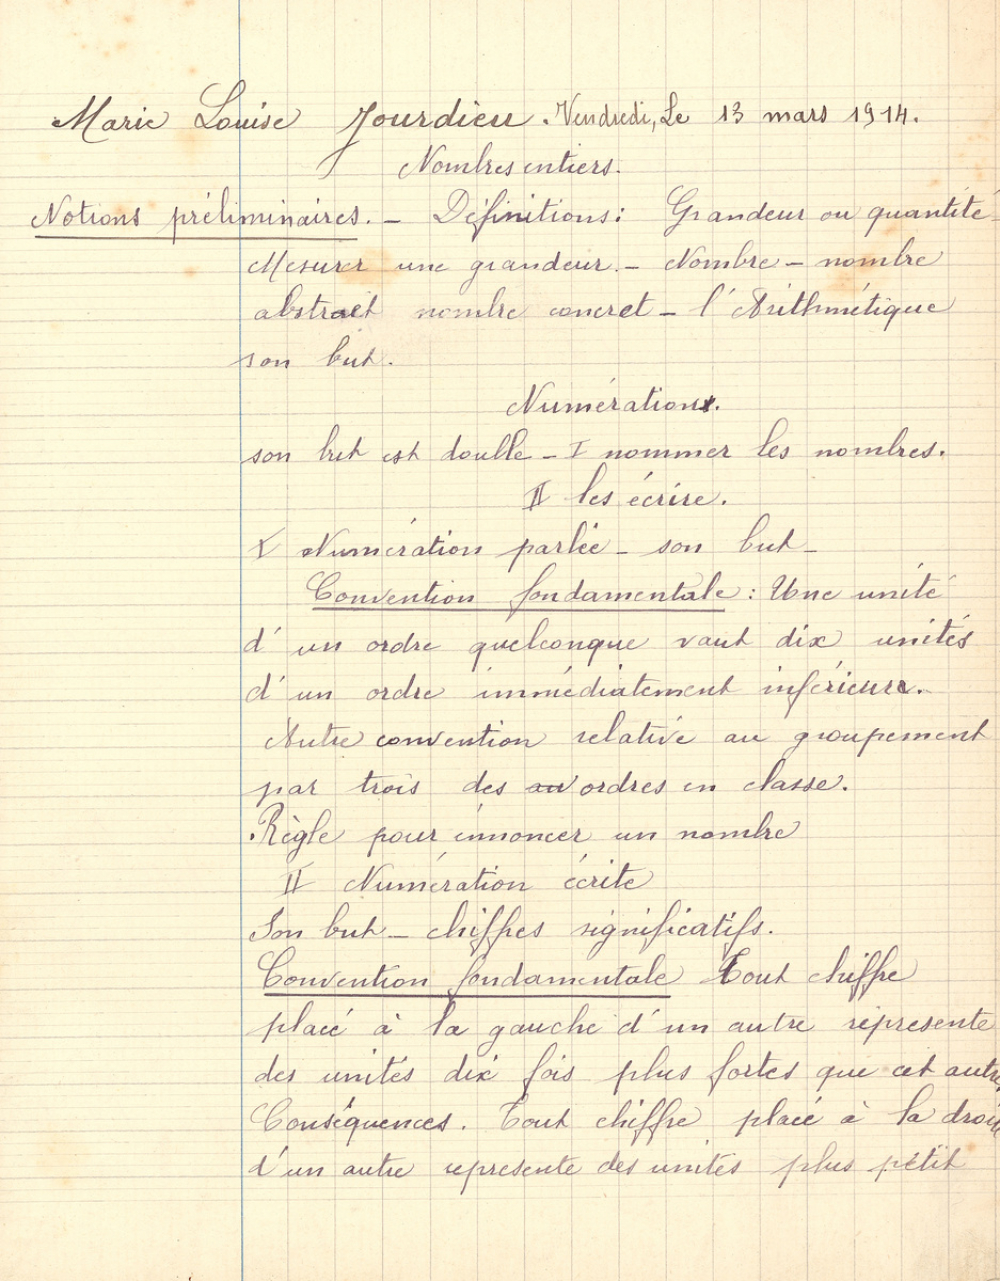 Marie Louise Jourdieu. Vendredi, Le 13 mars 1914.
Nombres entiers.
Notions préliminaires. – Définitions: Grandeur ou quantité
Mesurer une grandeur. – Nombre – nombre
abstrait nombre concret – l'Arithmétique
son but.
Numération.
son but est double – I nommer les nombres.
II les écrire.
I Numération parlée – son but –
Convention fondamentale : Une unité
d'un ordre quelconque vaut dix unités
d'un ordre immédiatement inférieur.
Autre convention relative au groupement
par trois des au ordres en classe.
Règle pour énnoncer un nombre
II Numération écrite
Son but – chiffres significatifs.
Convention fondamentale Tout chiffre
placé à la gauche d'un autre représente
des unités dix fois plus fortes que cet autre
Conséquences. Tout chiffre placé à la droite
d'un autre represente des unités plus petit